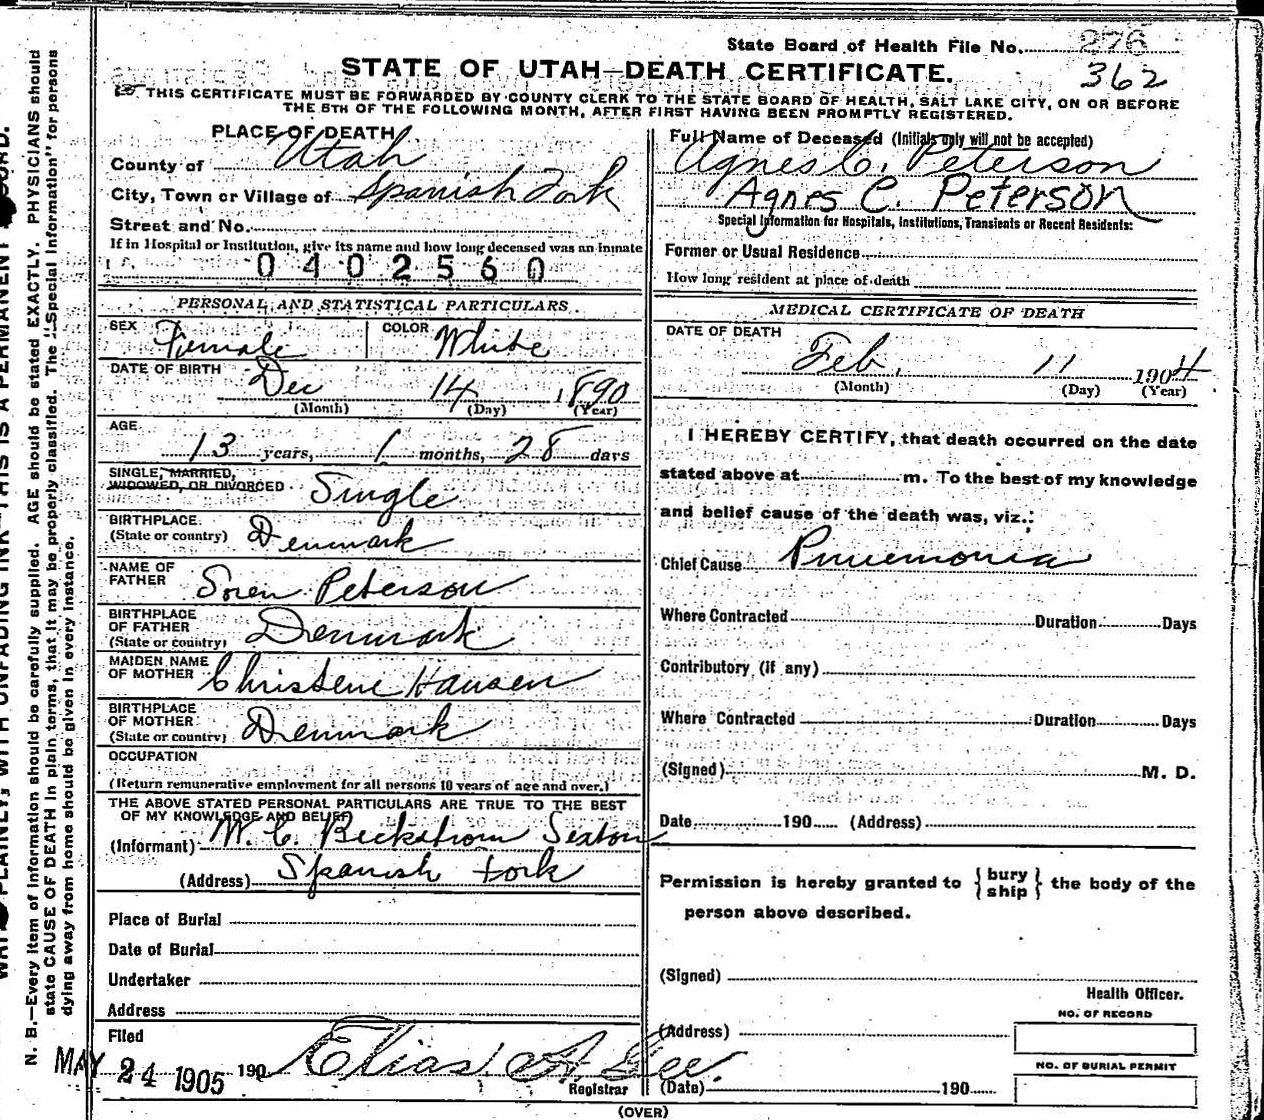 State Board of Health File No. 276
362
STATE OF UTAH—DEATH CERTIFICATE.
THIS CERTIFICATE MUST BE FORWARDED BY COUNTY CLERK TO THE STATE BOARD OF HEALTH, SALT LAKE CITY, ON OR BEFORE
THE 5TH OF THE FOLLOWING MONTH, AFTER FIRST HAVING BEEN PROMPTLY REGISTERED.
PLACE OF DEATH
County of Utah
City, Town or Village of Spanish Fork
Street and No.
If in Hospital or Institution, give its name and how long deceased was an inmate
0402560
PERSONAL AND STATISTICAL PARTICULARS
SEX Female COLOR White
DATE OF BIRTH Dec 14 1890
(Month) (Day) (Year)
AGE
13 years, 1 months, 28 days
SINGLE, MARRIED,
WIDOWED, OR DIVORCED Single
BIRTHPLACE
(State or country) Denmark
NAME OF
FATHER Soren Peterson
BIRTHPLACE
OF FATHER
(State or country) Denmark
MAIDEN NAME
OF MOTHER Christene Hansen
BIRTHPLACE
OF MOTHER
(State or country) Denmark
OCCUPATION
(Return remunerative employment for all persons 10 years of age and over.)
THE ABOVE STATED PERSONAL PARTICULARS ARE TRUE TO THE BEST
OF MY KNOWLEDGE AND BELIEF
(Informant) W. C. Beckstrom Sexton
(Address) Spanish Fork
Place of Burial
Date of Burial
Undertaker
Address
Filed
MAY 24 1905 190 Elias A. Gee.
Registrar
Full Name of Deceased (Initials only will not be accepted)
Agnes C. Peterson
Agnes C. Peterson
Special Information for Hospitals, Institutions, Transients or Recent Residents:
Former or Usual Residence
How long resident at place of death
MEDICAL CERTIFICATE OF DEATH
DATE OF DEATH
Feb. 11 1904
(Month) (Day) (Year)
I HEREBY CERTIFY, that death occurred on the date
stated above at m. To the best of my knowledge
and belief cause of the death was, viz.:
Chief Cause Pnuemonia
Where Contracted Duration Days
Contributory (if any)
Where Contracted Duration Days
(Signed) M. D.
Date 190 (Address)
Permission is hereby granted to { bury
ship } the body of the
person above described.
(Signed)
Health Officer.
(Address)
NO. OF RECORD
NO. OF BURIAL PERMIT
(Date) 190
(OVER)
PLAINLY, WITH UNFADING INK—THIS IS A PERMANENT
N. B.—Every item of information should be carefully supplied. AGE should be stated EXACTLY. PHYSICIANS should
state CAUSE OF DEATH in plain terms, that it may be properly classified. The "Special Information" for persons
dying away from home should be given in every instance.